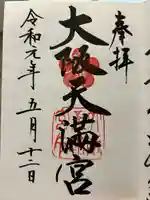 奉拝
大阪天満宮
令和元年五月十二日